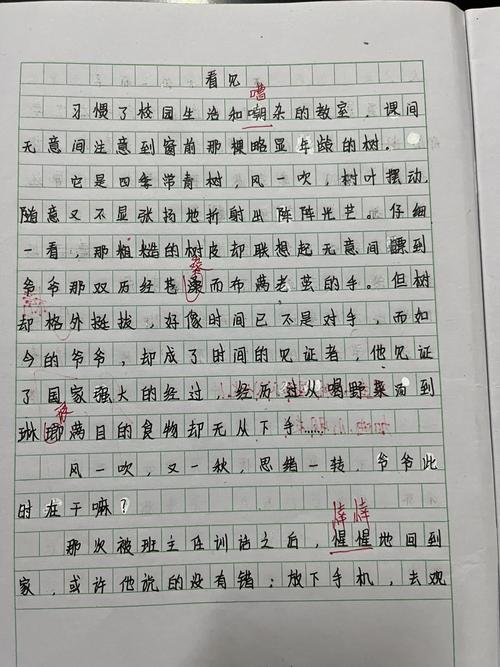 看见
嘈
习惯了校园生活和嘲杂的教室，课间
无意间注意到窗前那棵略显年龄的树.
它是四季常青树，风一吹，树叶摆动，
随意又不显张扬地折射出阵阵光芒。仔细
一看，那粗糙的树皮却联想起无意间瞟到
爷爷那双历经苍而布满老茧的手。但树
却格外挺拔，好像时间已不是对手，而如
今的爷爷，却成了时间的见证者，他见证
了国家强大的经过，经历过从喝野菜汤到
琳满目的食物却无从下手……
风一吹，又一秋，思绪一转，爷爷此
时在干嘛？
悻悻
那次被班主任训诘之后，惺惺地回到
家，或许他说的没有错：放下手机，去观